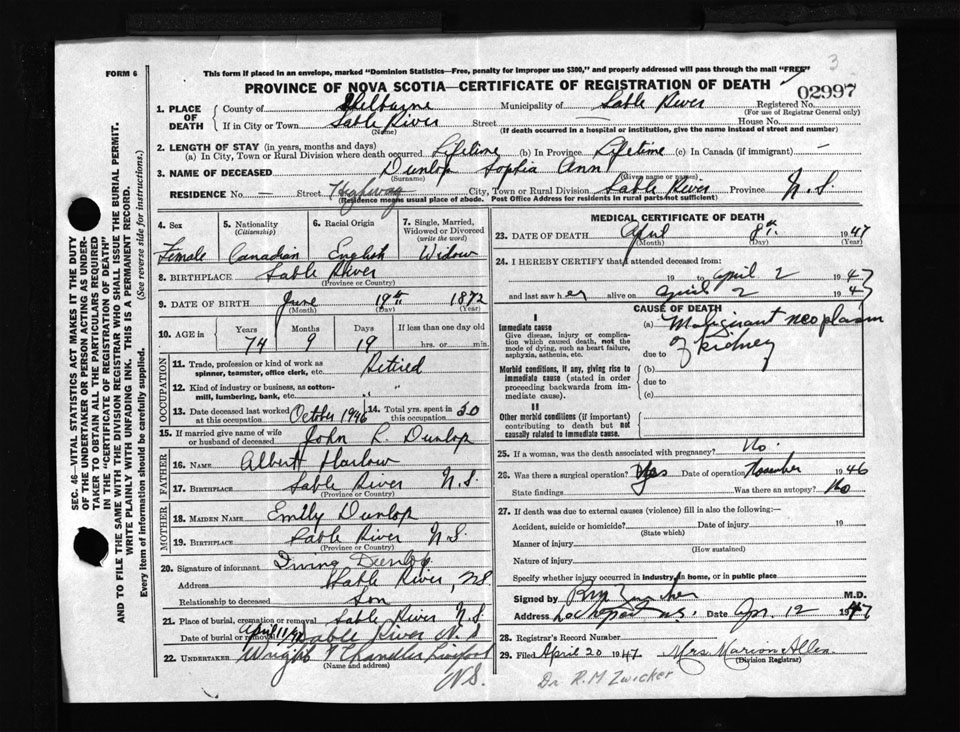 3
FORM 6
This form if placed in an envelope, marked "Dominion Statistics—Free, penalty for improper use $300," and properly addressed will pass through the mail "FREE"
PROVINCE OF NOVA SCOTIA—CERTIFICATE OF REGISTRATION OF DEATH
02997
1. PLACE OF DEATH
County of Shelburne Municipality of Sable River Registered No.
(For use of Registrar General only)
If in City or Town Sable River Street House No.
(Name) (If death occurred in a hospital or institution, give the name instead of street and number)
2. LENGTH OF STAY (in years, months and days)
(a) In City, Town or Rural Division where death occurred Lifetime (b) In Province Lifetime (c) In Canada (if immigrant) —
3. NAME OF DECEASED Dunlop Sophia Ann
(Surname) (Given name or names)
RESIDENCE No. — Street Highway City, Town or Rural Division Sable River Province N.S.
(Residence means usual place of abode. Post Office Address for residents in rural parts not sufficient)
4. Sex Female
5. Nationality (Citizenship) Canadian
6. Racial Origin English
7. Single, Married, Widowed or Divorced (write the word) Widow
8. BIRTHPLACE Sable River
(Province or Country)
9. DATE OF BIRTH June 19th 1872
(Month) (Day) (Year)
10. AGE in Years Months Days If less than one day old
74 9 19 hrs. or min.
OCCUPATION
11. Trade, profession or kind of work as spinner, teamster, office clerk, etc. Retired
12. Kind of industry or business, as cotton-mill, lumbering, bank, etc. "
13. Date deceased last worked at this occupation October 1946
14. Total yrs. spent in this occupation 50
15. If married give name of wife or husband of deceased John L. Dunlop
FATHER
16. NAME Albert Harlow
17. BIRTHPLACE Sable River N.S.
(Province or Country)
MOTHER
18. MAIDEN NAME Emily Dunlop
19. BIRTHPLACE Sable River N.S.
(Province or Country)
20. Signature of informant Irving Dunlop
Address Sable River, NS
Relationship to deceased Son
21. Place of burial, cremation or removal Sable River N.S.
Date of burial or removal April 11/47 Sable River N.S
22. UNDERTAKER Wright & Chandler Liverpool
(Name and address)
N.S.
MEDICAL CERTIFICATE OF DEATH
23. DATE OF DEATH April 8th 1947
(Month) (Day) (Year)
24. I HEREBY CERTIFY that I attended deceased from:
19 to April 2 1947
and last saw her alive on April 2 1947
CAUSE OF DEATH
I
Immediate cause
Give disease, injury or complication which caused death, not the mode of dying, such as heart failure, asphyxia, asthenia, etc.
(a) Malignant neoplasm of kidney
due to
Morbid conditions, if any, giving rise to immediate cause (stated in order proceeding backwards from immediate cause).
(b)
due to
(c)
II
Other morbid conditions (if important) contributing to death but not causally related to immediate cause.
25. If a woman, was the death associated with pregnancy? No
26. Was there a surgical operation? Yes Date of operation November 1946
State findings Was there an autopsy? No
27. If death was due to external causes (violence) fill in also the following:—
Accident, suicide or homicide? Date of injury 19
(State which)
Manner of injury
(How sustained)
Nature of injury
Specify whether injury occurred in industry, in home, or in public place
Signed by RM Zwicker M.D.
Address Lockeport N.S. Date Apr. 12 1947
28. Registrar's Record Number
29. Filed April 20 1947. Mrs. Marion Allen
(Division Registrar)
Dr R.M Zwicker
SEC. 46—VITAL STATISTICS ACT MAKES IT THE DUTY
OF THE UNDERTAKER OR PERSON ACTING AS UNDER-
TAKER TO OBTAIN ALL THE PARTICULARS REQUIRED
IN THE "CERTIFICATE OF REGISTRATION OF DEATH"
AND TO FILE THE SAME WITH THE DIVISION REGISTRAR WHO SHALL ISSUE THE BURIAL PERMIT.
WRITE PLAINLY WITH UNFADING INK. THIS IS A PERMANENT RECORD.
Every item of information should be carefully supplied. (See reverse side for instructions.)